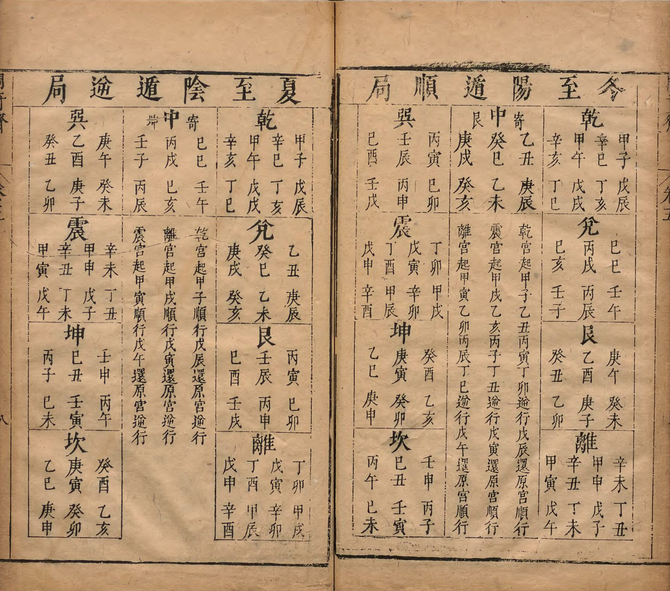 冬至陽遁順局
乾
甲子 戊辰
辛巳 丁亥
甲午 戊戌
辛亥 丁巳
兌
己巳 壬午
丙戌 丙辰
己亥 壬子
艮
庚午 癸未
乙酉 庚子
癸丑 乙卯
離
辛未 丁丑
甲申 戊子
辛丑 丁未
甲寅 戊午
中寄艮
乙丑 庚辰
癸巳 乙未
庚戌 癸亥
乾宮起甲子乙丑丙寅丁卯逆行戊辰還原宮順行
震宮起甲戌乙亥丙子丁丑逆行戊寅還原宮順行
離宮起甲寅乙卯丙辰丁巳逆行戊午還原宮順行
巽
丙寅 己卯
壬辰 丙申
己酉 壬戌
震
丁卯 甲戌
戊寅 辛卯
丁酉 甲辰
戊申 辛酉
坤
癸酉 乙亥
庚寅 癸卯
乙巳 庚申
坎
壬申 丙子
己丑 壬寅
丙午 己未
夏至陰遁逆局
乾
甲子 戊辰
辛巳 丁亥
甲午 戊戌
辛亥 丁巳
兌
乙丑 庚辰
癸巳 乙未
庚戌 癸亥
艮
丙寅 己卯
壬辰 丙申
己酉 壬戌
離
丁卯 甲戌
戊寅 辛卯
丁酉 甲辰
戊申 辛酉
中寄坤
己巳 壬午
丙戌 己亥
壬子 丙辰
乾宮起甲子順行戊辰還原宮逆行
離宮起甲戌順行戊寅還原宮逆行
震宮起甲寅順行戊午還原宮逆行
巽
庚午 癸未
乙酉 庚子
癸丑 乙卯
震
辛未 丁丑
甲申 戊子
辛丑 丁未
甲寅 戊午
坤
壬申 丙午
己丑 壬寅
丙子 己未
坎
癸酉 乙亥
庚寅 癸卯
乙巳 庚申
八